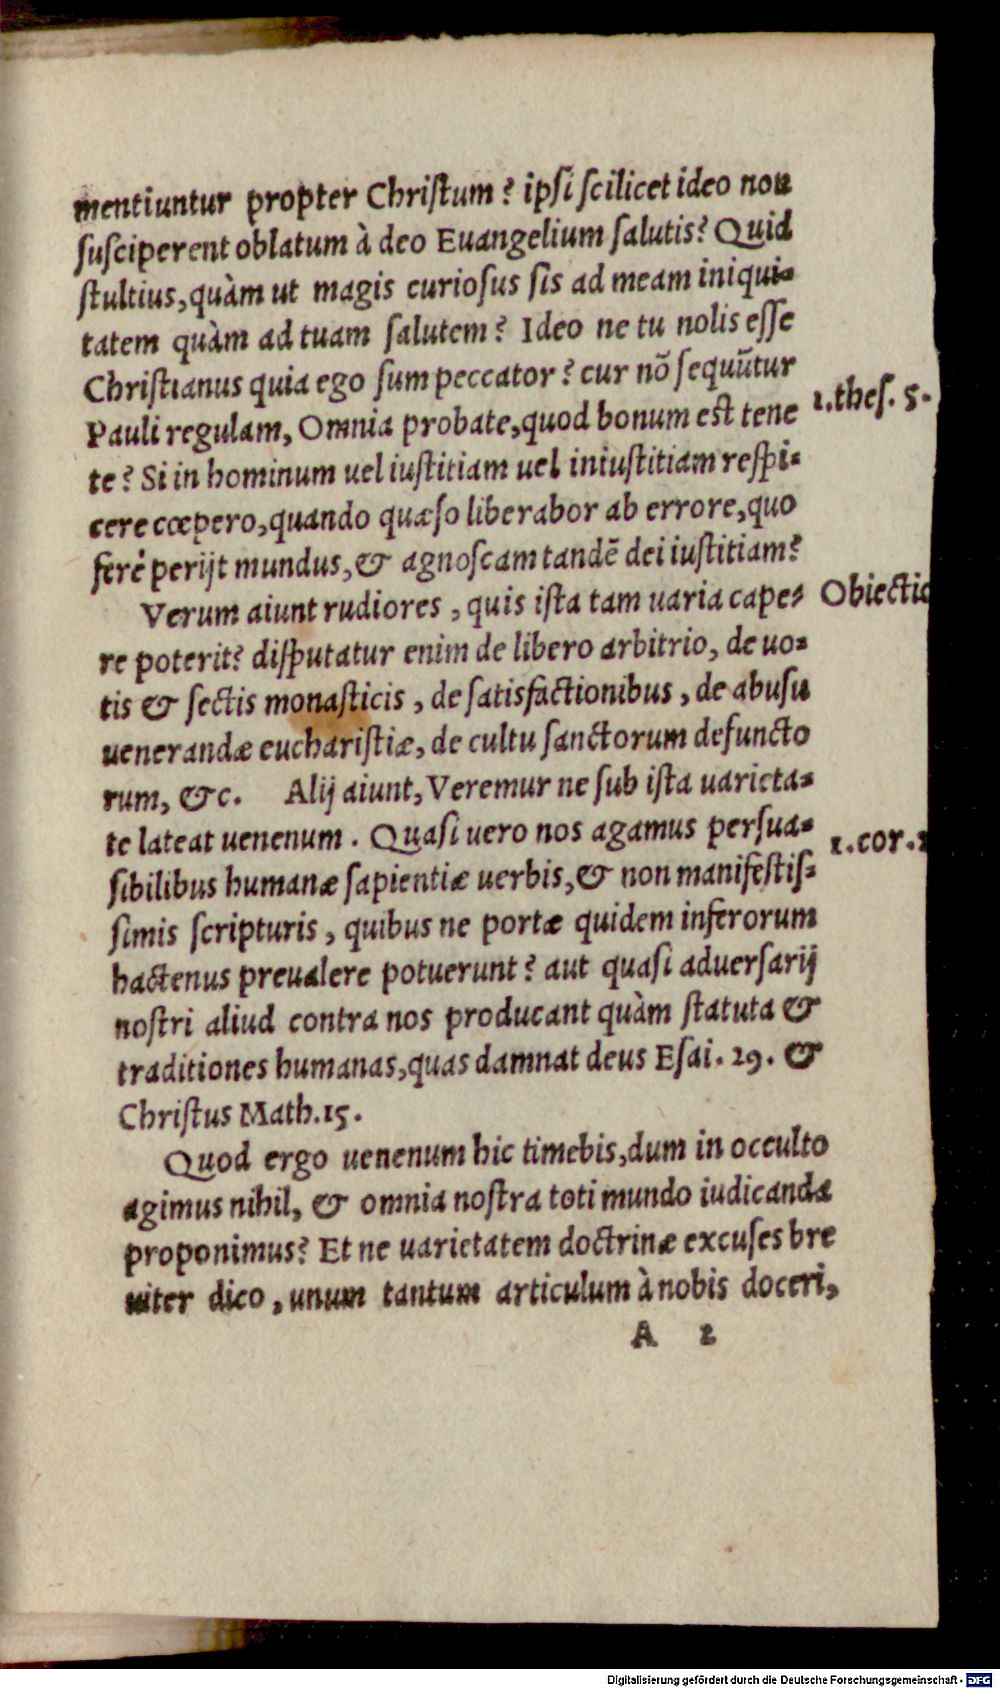 mentiuntur propter Chriſtum? ipſi ſcilicet ideo non
ſuſciperent oblatum à deo Euangelium ſalutis? Quid
ſtultius, quàm ut magis curioſus ſis ad meam iniqui-
tatem quàm ad tuam ſalutem? Ideo ne tu nolis eſſe
Chriſtianus quia ego ſum peccator? cur nõ ſequũtur
Pauli regulam, Omnia probate, quod bonum eſt tene
1.theſ. 5.
te? Si in hominum uel iuſtitiam uel iniuſtitiam reſpi-
cere cœpero, quando quæſo liberabor ab errore, quo
ferè perijt mundus, & agnoſcam tandẽ dei iuſtitiam?
Verum aiunt rudiores, quis iſta tam uaria cape-
Obiectio
re poterit? diſputatur enim de libero arbitrio, de uo-
tis & ſectis monaſticis, de ſatisfactionibus, de abuſu
uenerandæ euchariſtiæ, de cultu ſanctorum defuncto
rum, &c. Alij aiunt, Veremur ne ſub iſta uarieta-
te lateat uenenum. Quaſi uero nos agamus perſua-
1.cor.
ſibilibus humanæ ſapientiæ uerbis, & non manifeſtiſ-
ſimis ſcripturis, quibus ne portæ quidem inferorum
hactenus preualere potuerunt? aut quaſi aduerſarij
noſtri aliud contra nos producant quàm ſtatuta &
traditiones humanas, quas damnat deus Eſai. 29. &
Chriſtus Math.15.
Quod ergo uenenum hic timebis, dum in occulto
agimus nihil, & omnia noſtra toti mundo iudicanda
proponimus? Et ne uarietatem doctrinæ excuſes bre
uiter dico, unum tantum articulum à nobis doceri,
A 2
Digitalisierung gefördert durch die Deutsche Forschungsgemeinschaft - DFG